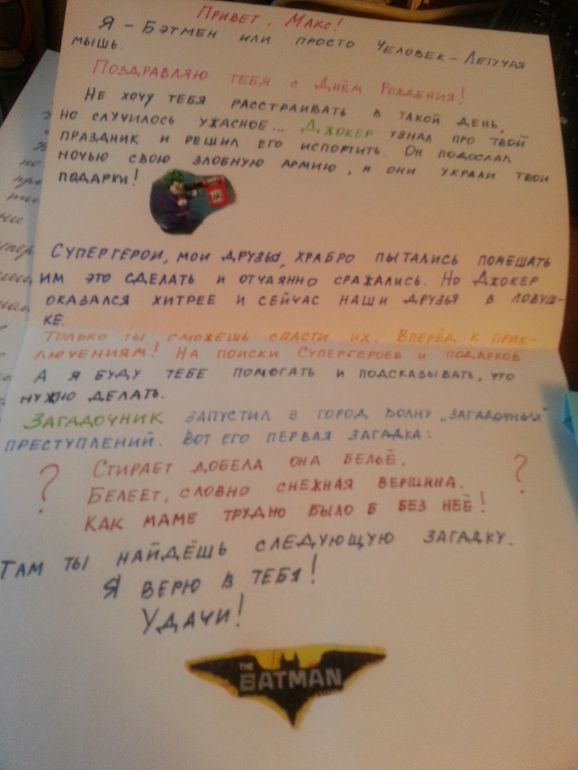 Привет, Макс!
Я – Бэтмен или просто Человек – Летучая
мышь.
Поздравляю тебя с Днём Рождения!
Не хочу тебя расстраивать в такой день,
но случилось ужасное... Джокер узнал про твой
праздник и решил его испортить. Он подослал
ночью свою злобную армию, и они украли твои
подарки!
Супергерои, мои друзья, храбро пытались помешать
им это сделать и отчаянно сражались. Но Джокер
оказался хитрее и сейчас наши друзья в ловуш-
ке.
Только ты сможешь спасти их. Вперёд к прик-
лючениям! На поиски Супергероев и подарков
А я буду тебе помогать и подсказывать, что
нужно делать.
Загадочник запустил в город волну „загадочных"
преступлений. Вот его первая загадка:
? Стирает добела она бельё. ?
Белеет, словно снежная вершина.
Как маме трудно было б без неё!
Там ты найдёшь следующую загадку.
Я верю в тебя!
Удачи!
THE
BATMAN